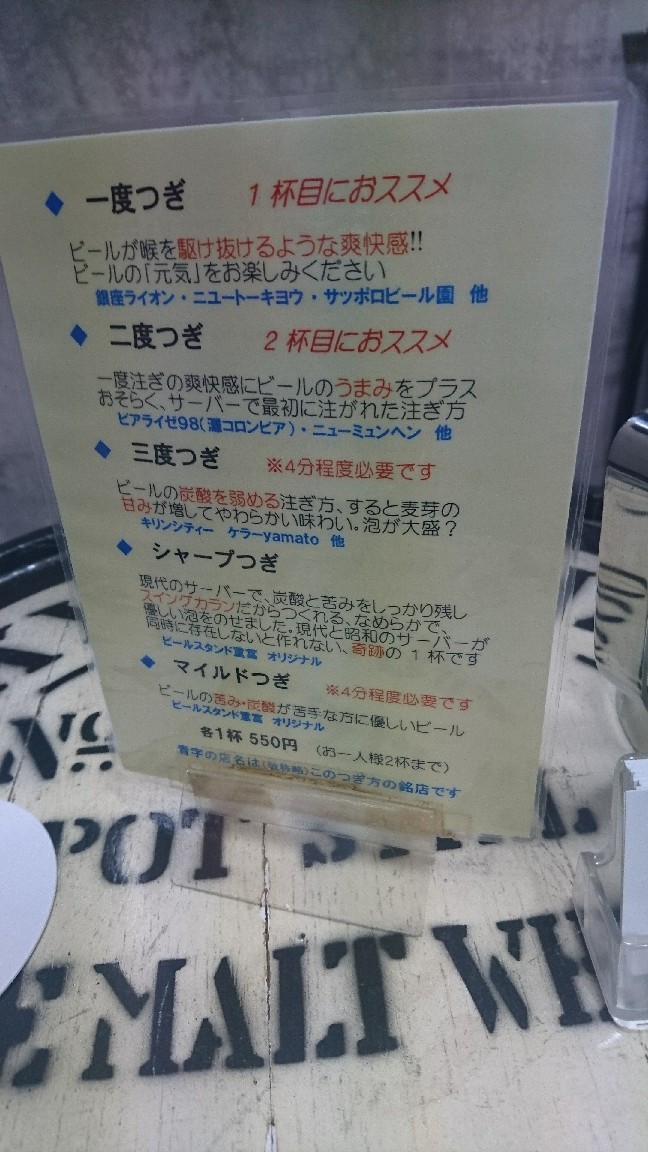 ◆ 一度つぎ 1杯目におススメ
ビールが喉を駆け抜けるような爽快感!!
ビールの「元気」をお楽しみください
銀座ライオン・ニユートーキヨウ・サッポロビール園 他
◆ 二度つぎ 2杯目におススメ
一度注ぎの爽快感にビールのうまみをプラス
おそらく、サーバーで最初に注がれた注ぎ方
ビアライゼ98(灘コロンビア)・ニューミュンヘン 他
◆ 三度つぎ ※4分程度必要です
ビールの炭酸を弱める注ぎ方、すると麦芽の
甘みが増してやわらかい味わい。泡が大盛?
キリンシティー ケラーyamato 他
◆ シャープつぎ
現代のサーバーで、炭酸と苦みをしっかり残し
スイングカランだからつくれる、なめらかで、
優しい泡をのせました。現代と昭和のサーバーが
同時に存在しないと作れない、奇跡の1杯です
ビールスタンド重富 オリジナル
◆ マイルドつぎ ※4分程度必要です
ビールの苦み・炭酸が苦手な方に優しいビール
ビールスタンド重富 オリジナル
各1杯 550円 (お一人様2杯まで)
青字の店名は(敬称略)このつぎ方の銘店です
POT
MALT WH